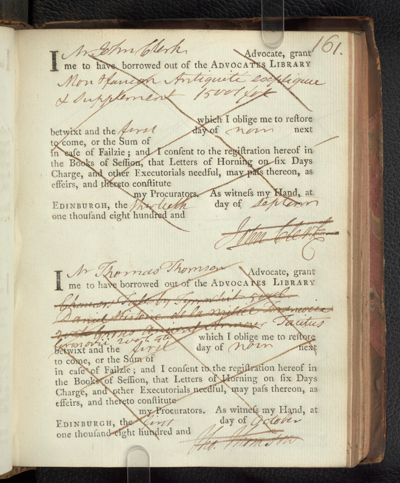 161.
I Mr John Clerk Advocate, grant
me to have borrowed out of the ADVOCATES LIBRARY
Montfaucon Antiquité expliquée
& Supplement 15 vol fol
which I oblige me to restore
betwixt and the first day of novr next
to come, or the Sum of
in case of Failzie; and I consent to the registration hereof in
the Books of Session, that Letters of Horning on six Days
Charge, and other Executorials needful, may pass thereon, as
effeirs, and thereto constitute
my Procurators. As witness my Hand, at
EDINBURGH, the thirtieth day of Septemr
one thousand eight hundred and
John Clerk
I Mr Thomas Thomson Advocate, grant
me to have borrowed out of the ADVOCATES LIBRARY
Daniel Histoire de la milice
Tacitus
2 vol
which I oblige me to restore
betwixt and the first day of novr next
to come, or the Sum of
in case of Failzie; and I consent to the registration hereof in
the Books of Session, that Letters of Horning on six Days
Charge, and other Executorials needful, may pass thereon, as
effeirs, and thereto constitute
my Procurators. As witness my Hand, at
EDINBURGH, the first day of October
one thousand eight hundred and
Tho. Thomson